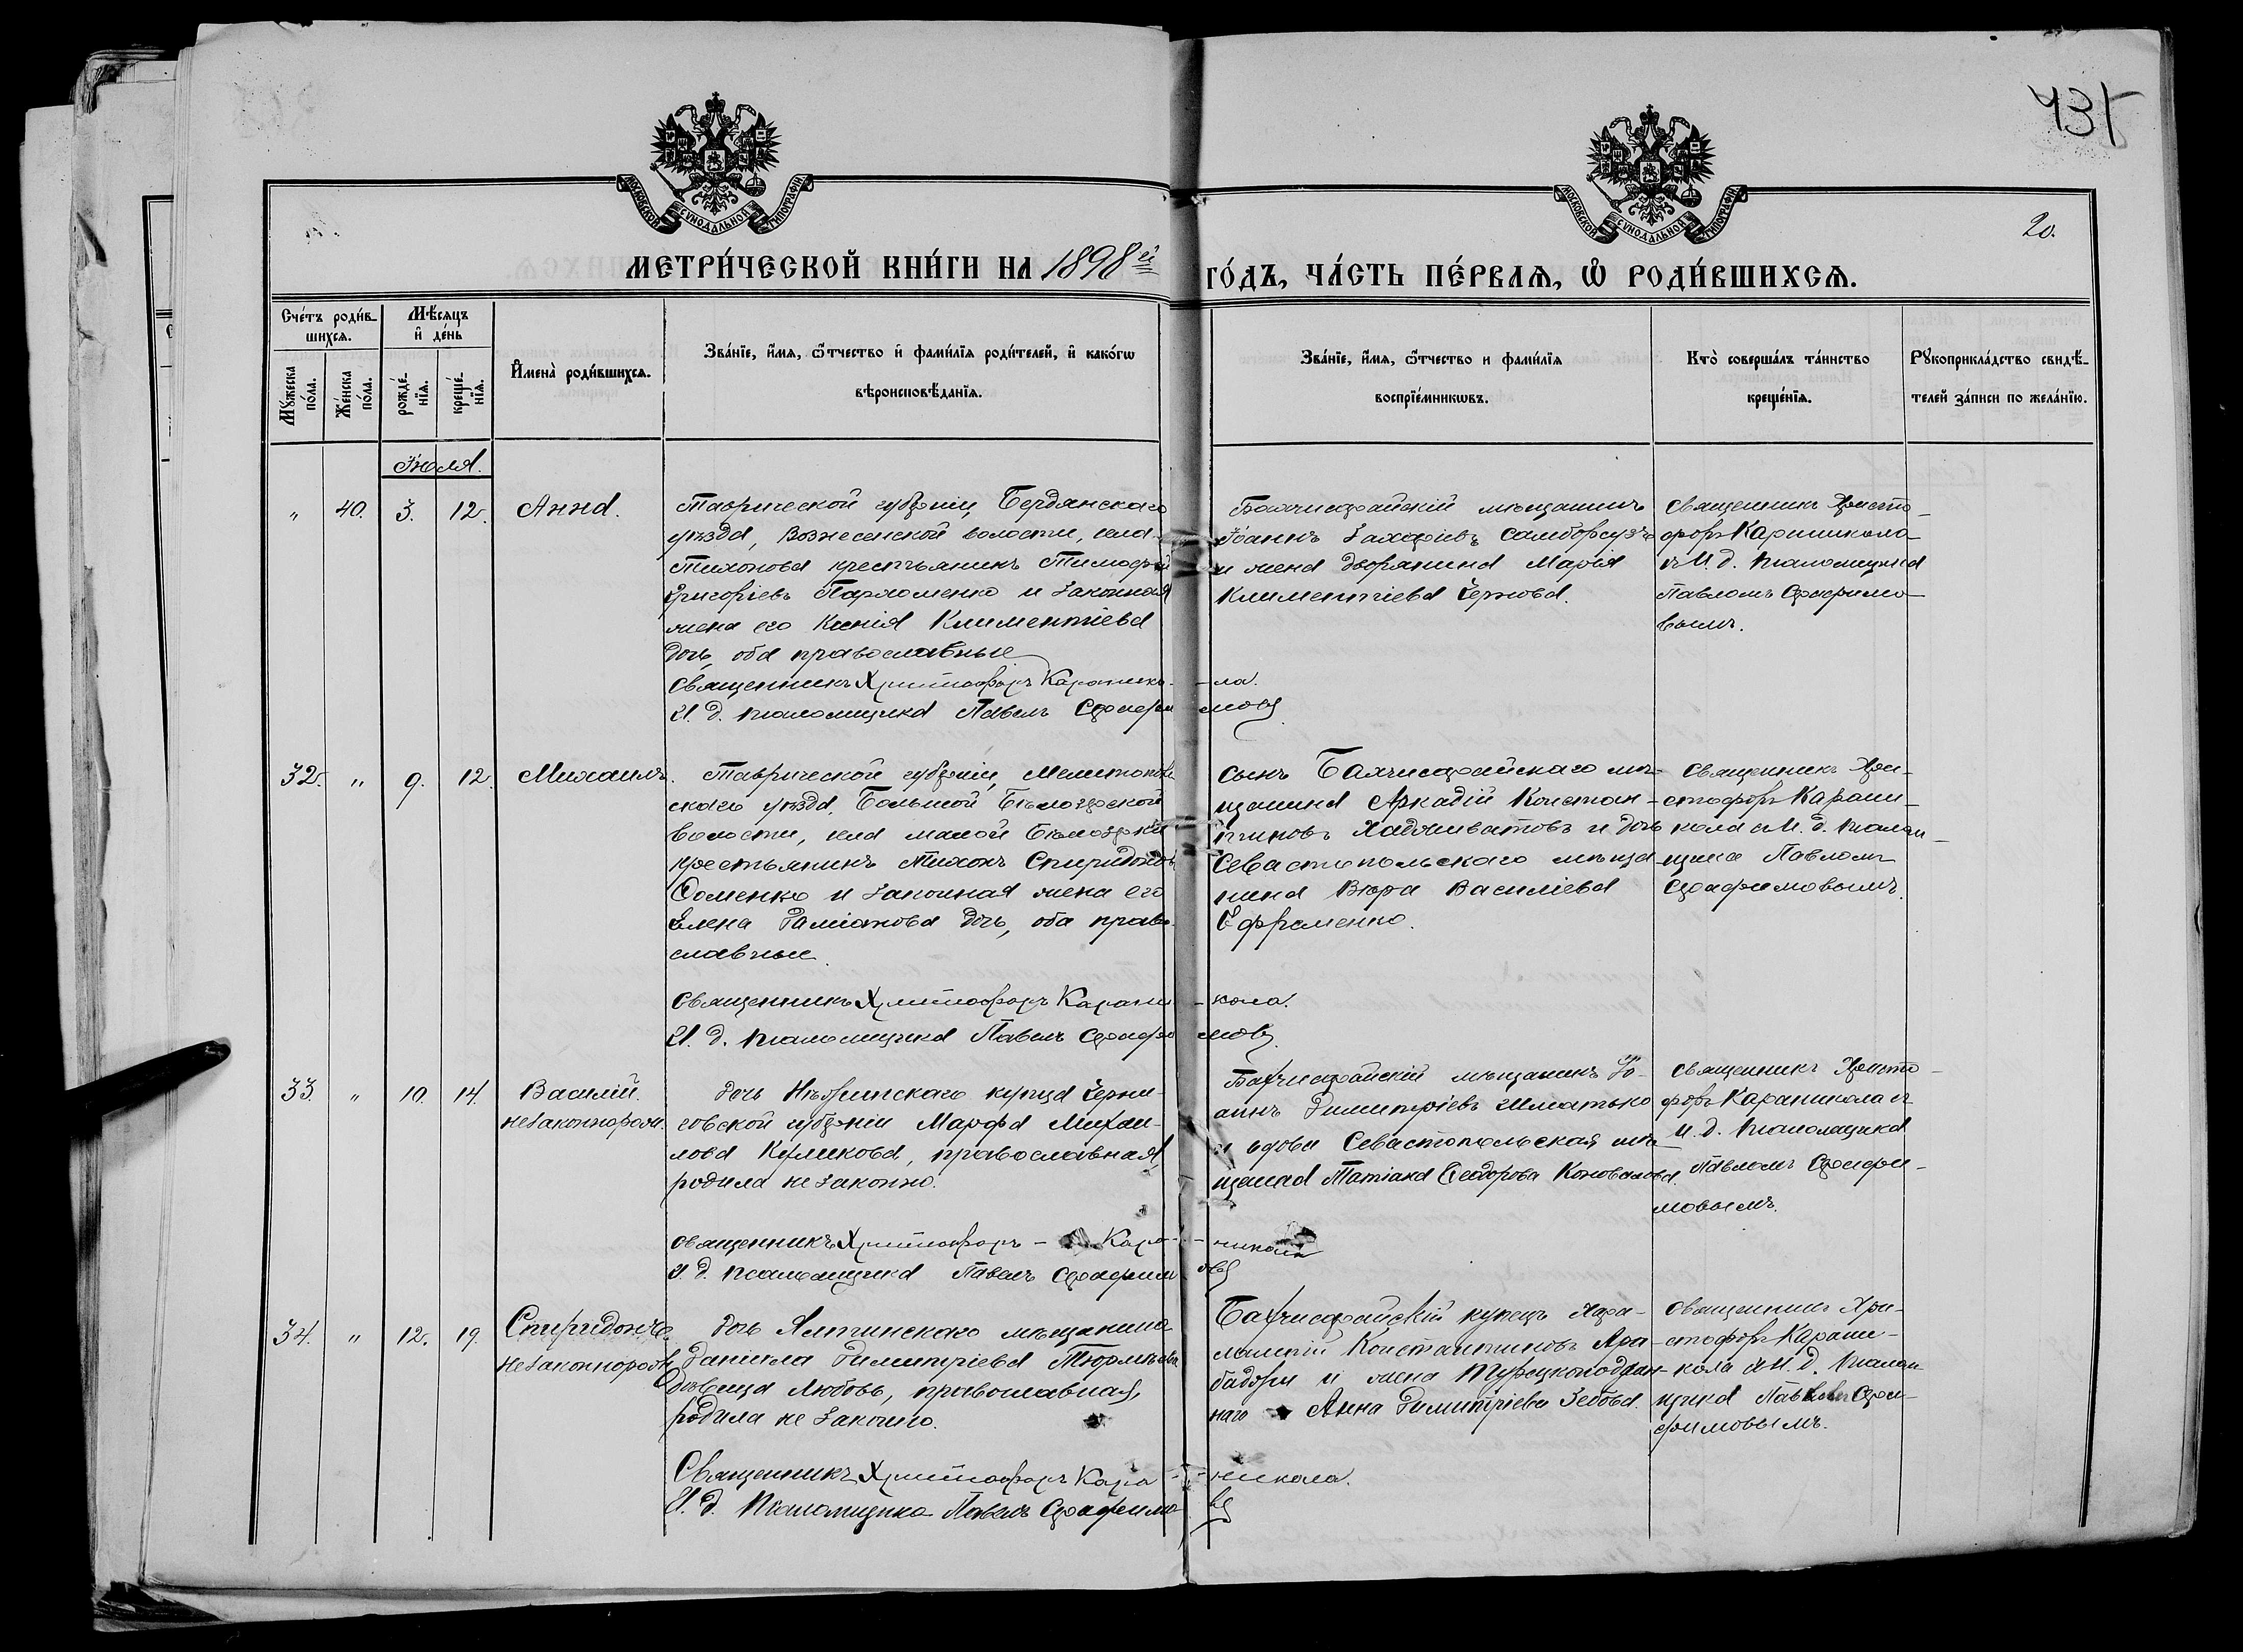 431
20.
МОСКОВСКОЙ СѴНОДАЛЬНОЙ ТИПОГРАФІИ
МОСКОВСКОЙ СѴНОДАЛЬНОЙ ТИПОГРАФІИ
МЕТРИ́ЧЕСКОЙ КНИ́ГИ НА 1898й ГО́ДЪ, ЧА́СТЬ ПЕ́РВАѦ, Ѡ҆ РОДИ́ВШИХСѦ.
Сче́тъ роди́вшихсѧ.
Мꙋ́жеска по́ла.
Же́нска по́ла.
Мѣ́сѧцъ и҆ де́нь
рожде́нїѧ.
креще́нїѧ.
И҆мена̀ роди́вшихсѧ.
Зва́нїе, и҆́мѧ, ѻ҆́тчество и҆ фами́лїѧ роди́телей, и҆ како́гѡ
вѣроисповѣ́данїѧ.
Зва́нїе, и҆́мѧ, ѻ҆́тчество и фами́лїѧ
воспрїе́мникѡвъ.
Кто̀ соверша́лъ та́инство
креще́нїѧ.
Рꙋкоприкла́дство свидѣ́-
телей за́писи по жела́нїю.
Іюля.
" 40. 3. 12. Анна.
Таврической губерніи, Бердянскаго
уѣзда, Вознесенской волости, села
Тихонова крестьянинъ Тимофей
Григорьевъ Пархоменко и законная
жена его Ксенія Климентіева
дочь, оба православные
Священникъ Христофоръ Карани­ко-ла.
И. д. псаломщика Павелъ Серафимовъ
Бахчисарайскій мѣщанинъ
Іоаннъ Захаріевъ
и жена дворянина Марія
Климентіева Чернова.
Священникъ Христо-
форъ Карашикола
съ И. д. псаломщика
Павломъ Серафимо-
вымъ.
32. " 9. 12. Михаилъ.
Таврической губерніи, Мелитополь-
скаго уѣзда, Большой Бѣлозерской
волости, села малой Бѣлозерки
крестьянинъ Тихонъ Спиридоновъ
Ѳоменко и законная жена его
Елена Даміанова дочь, оба право-
славные.
Священникъ Христофоръ Карани-кола.
И. д. псаломщика Павелъ Серафимовъ
Сынъ Бахчисарайскаго мѣ-
щанина Аркадій Констан-
тиновъ Хаджиматовъ и дочь
Севастопольскаго мѣща-
нина Вѣра Василіева
Ефременко.
Священникъ Хри-
стофоръ Карани-
кола съ И. д. псалом-
щика Павломъ
Серафимовымъ.
33. " 10. 14. Василій.
незаконнорож.
Дочь Нѣжинскаго купца Черни-
говской губерніи Марфа Михаи-
лова Куликова, православная,
родила не законно.
Священникъ Христофоръ - Кара-никола
И. д. псаломщика Павелъ Серафимовъ
Бахчисарайскій мѣщанинъ Іо-
аннъ Димитріевъ Шматько
и вдова Севастопольская мѣ-
щанка Татіана Ѳеодорова Коновалова.
Священникъ Христо-
форъ Караникола съ
И. д. псаломщика
Павломъ Серафи-
мовымъ.
34. " 12. 19. Спиридонъ
незаконнорож.
Дочь Ялтинскаго мѣщанина
Даніила Димитріева
дѣвица Любовь, православная,
родила не законно.
Священникъ Христофоръ Кара-никола.
И. д. Псаломщика Павелъ Серафимовъ
Бахчисарайскій купецъ Хара-
лампій Константиновъ Ара-
баджи и жена Турецкоподдан-
наго Анна Димитріева Зебова.
Священникъ Хри-
стофоръ Карани-
кола съ И. д. псалом-
щика Павломъ Сера-
фимовымъ.